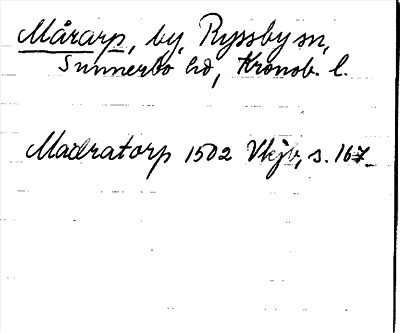 Mårarp, by, Ryssby sn,
Sunnerbo hd, Kronob. l.
Madratorp 1502 Vkjb, s. 167